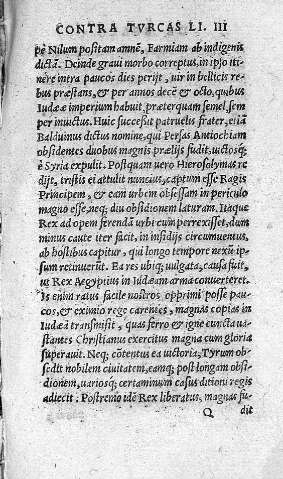 CONTRA TVRCAS LI. III
pè Nilum positam amnẽ, Farmiam ab indigenis
dictã. Deinde graui morbo correptus, in ipso iti
nère intra paucos dies perijt, uir in bellicis re
bus præstans, & per annos decẽ & octo, quibus
Iudææ imperium habuit, præterquam semel, sem
per inuictus. Huic succeßit patruelis frater, etiã
Balduinus dictus nomine, qui Persas Antiochiam
obsidentes duobus magnis prælijs fudit, uictosq;
è Syria expulit. Postquam uero Hierosolymas re
dijt, tristis ei allatus nuncius, captum esse Ragis
Principem, & eam urbem obsessam in periculo
magno esse, neq; diu obsidionem laturam. Itaque
Rex ad opem ferendã urbi cum perrexisset, dum
minus caute iter facit, in insidijs circumuentus,
ab hostibus capitur, qui longo tempore nexũ ip
sum retinuerũt. Ea res ubiq; uulgata, causa fuit,
ut Rex Aegyptius in Iudæam arma conuerteret.
Is enim ratus facile nostros opprimi posse pau
cos, & eximio rege carentes, magnas copias in
Iudæã transmisit, quas ferro & igne cuncta ua
stantes Christianus exercitus magna cum gloria
superauit. Neq; cõtentus ea uictoria, Tyrum ob
sedit nobilem ciuitatem, eamq; post longam obsi
dionem, uariosq; certaminum casus ditioni regis
adiecit. Postremo idẽ Rex liberatus, magnas fu
Q dit